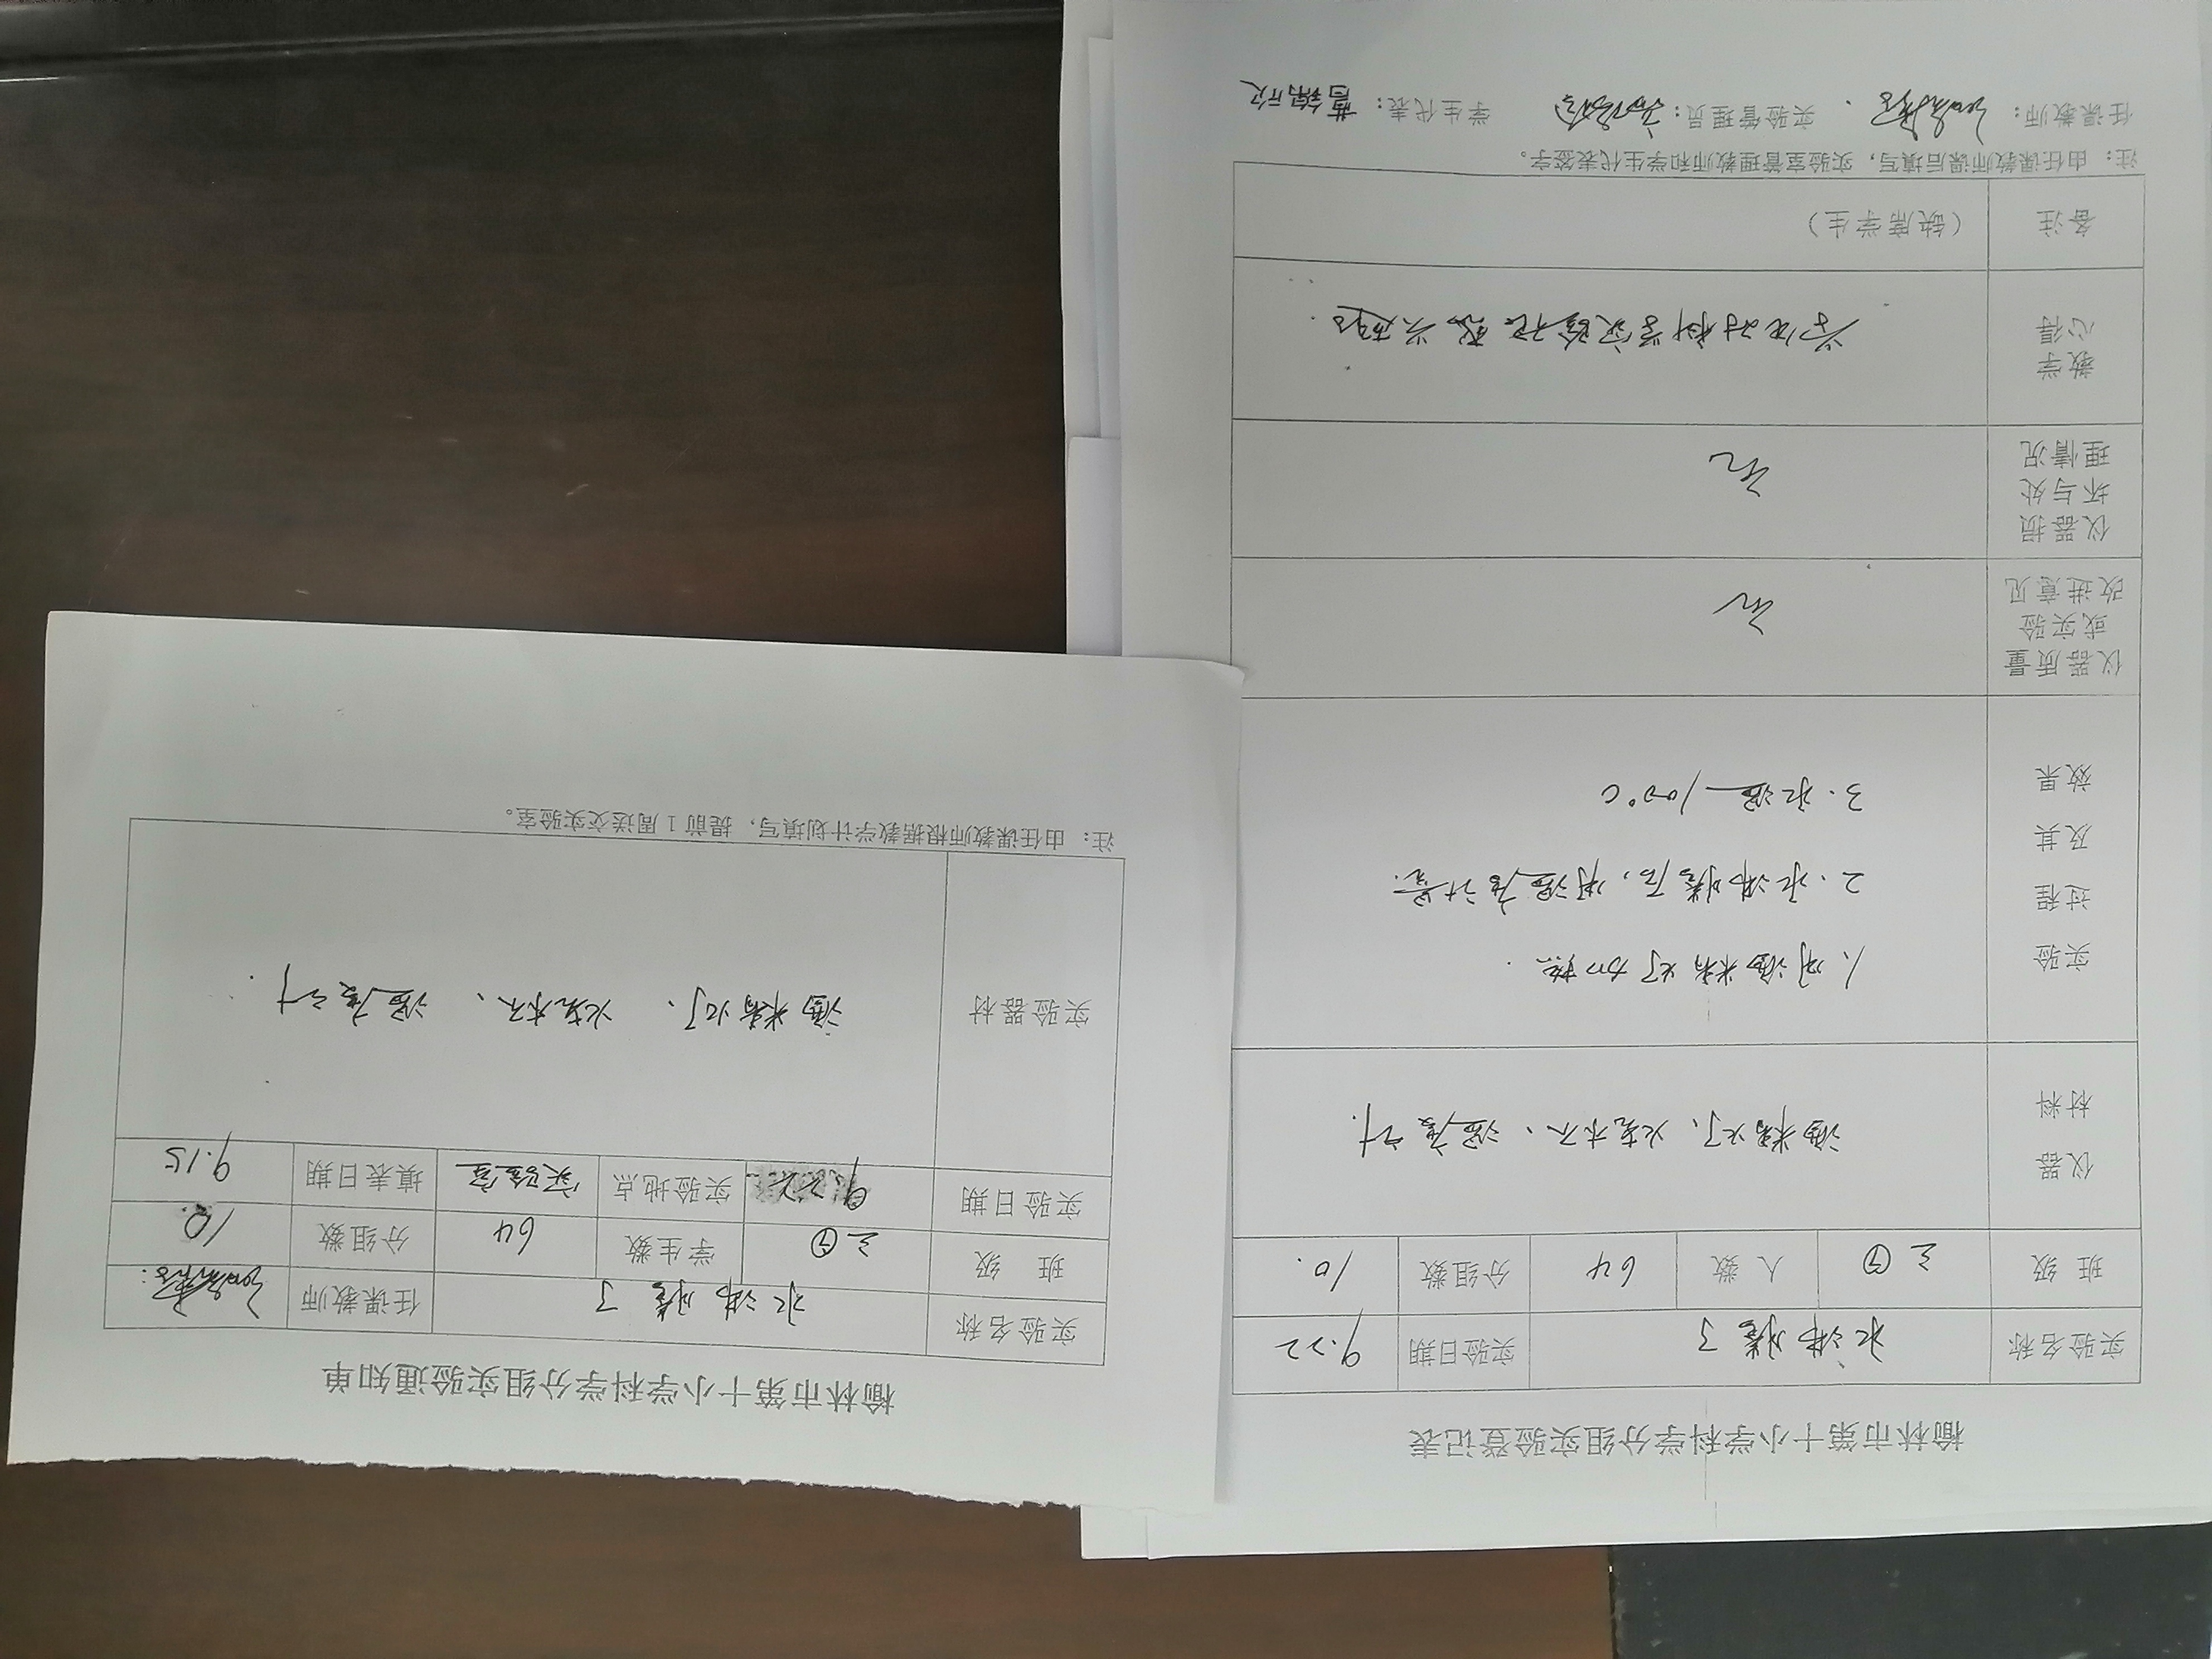 榆林市第十小学科学分组实验登记表
实验名称 水沸腾了 实验日期 9.22
班 级 三⑦ 人 数 64 分组数 10.
仪器
材料
酒精灯、烧杯、温度计.
实验
过程
及其
效果
1、用酒精灯加热.
2.水沸腾后,用温度计量.
3.水温100°C
仪器质量
或实验
改进意见
无
仪器损
坏与处
理情况
无
教学
心得
学生对科学实验很感兴趣.
备注 (缺席学生)
注: 由任课教师课后填写, 实验室管理教师和学生代表签字。
任课教师: 实验管理员: 学生代表:
榆林市第十小学科学分组实验通知单
实验名称 水沸腾了 任课教师
班 级 三⑦ 学生数 64 分组数 10.
实验日期 9.22 实验地点 实验室 填表日期 9.15
实验器材 酒精灯、 烧杯、 温度计.
注: 由任课教师根据教学计划填写, 提前1周送交实验室。